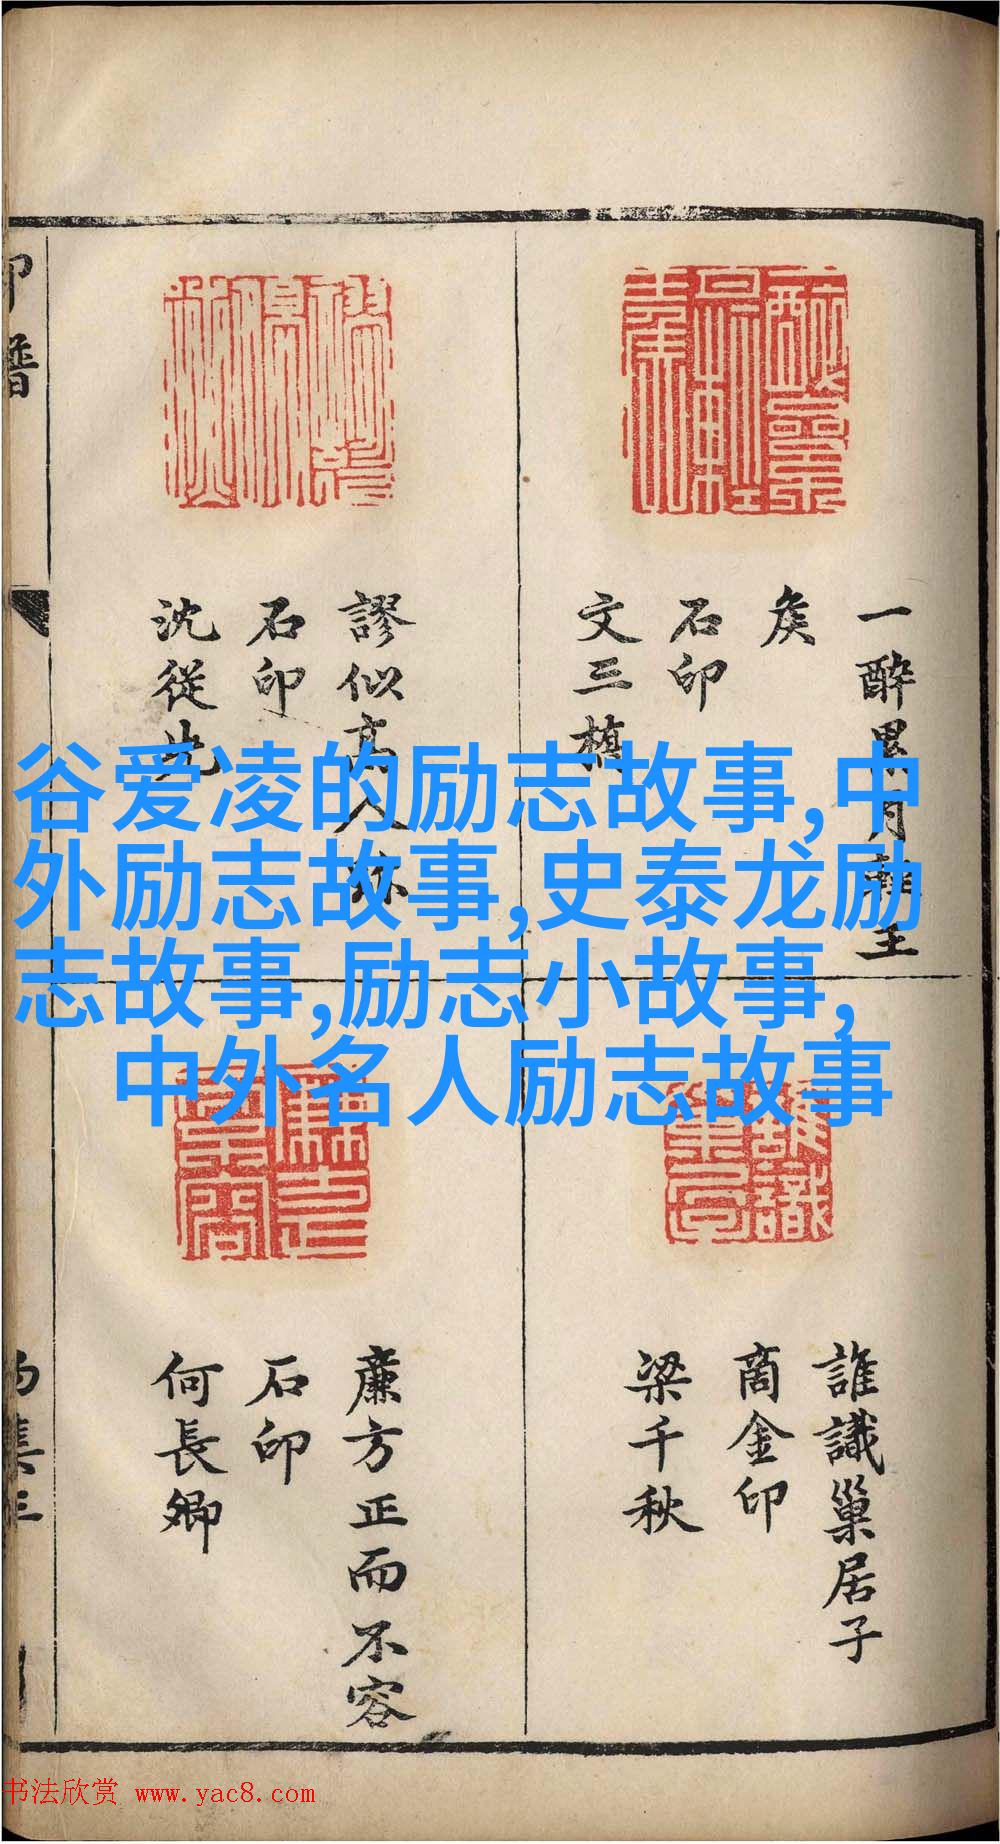 谷爱凌的励志故事,中
外励志故事,史泰龙励
志故事,励志小故事,
中外名人励志故事
一醉累月輕王
矦
石印
文三橋
謬似高人
石印
沈從先
誰識巢居子
商金印
梁千秋
廉方正而不容
石印
何長卿
印譜
書法欣赏 www.yac8.com